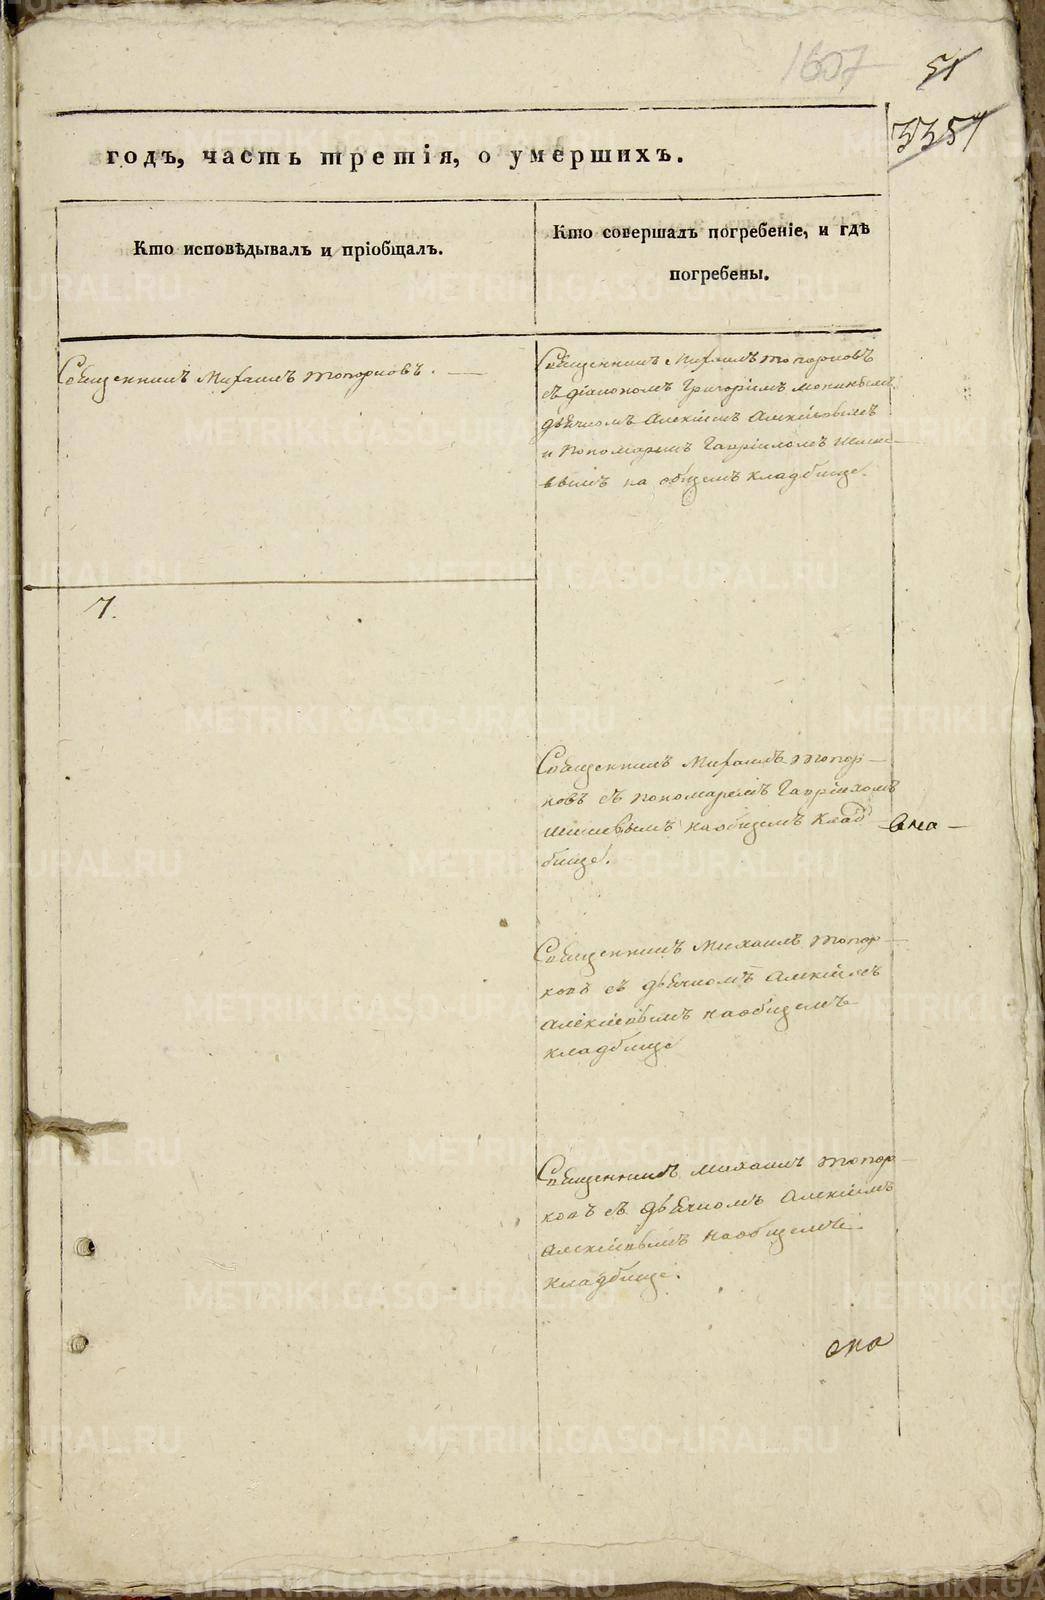 1607
51
3351
годъ, часть третія, о умершихъ.
Кто исповѣдывалъ и пріобщалъ.
Кто совершалъ погребеніе, и гдѣ
погребены.
Священникъ Михаилъ Топорковъ.
Священникъ Михаилъ Топорковъ
съ діакономъ Григоріемъ
дьячкомъ Алексіемъ Алексѣевымъ
и Пономаремъ Гавріиломъ
на общемъ кладбище.
7.
Священникъ Михаилъ Топор-
ковъ съ пономаремъ Гавріиломъ
на общемъ клад
бище.
Священникъ Михаилъ Топор-
ковъ съ дьячкомъ Алексіемъ
Алексіевымъ на общемъ
кладбище
Священникъ Михаилъ Топор-
ковъ съ дьячкомъ Алексіемъ
Алексіевымъ на общемъ
кладбище.
METRIKI.GASO-URAL.RU